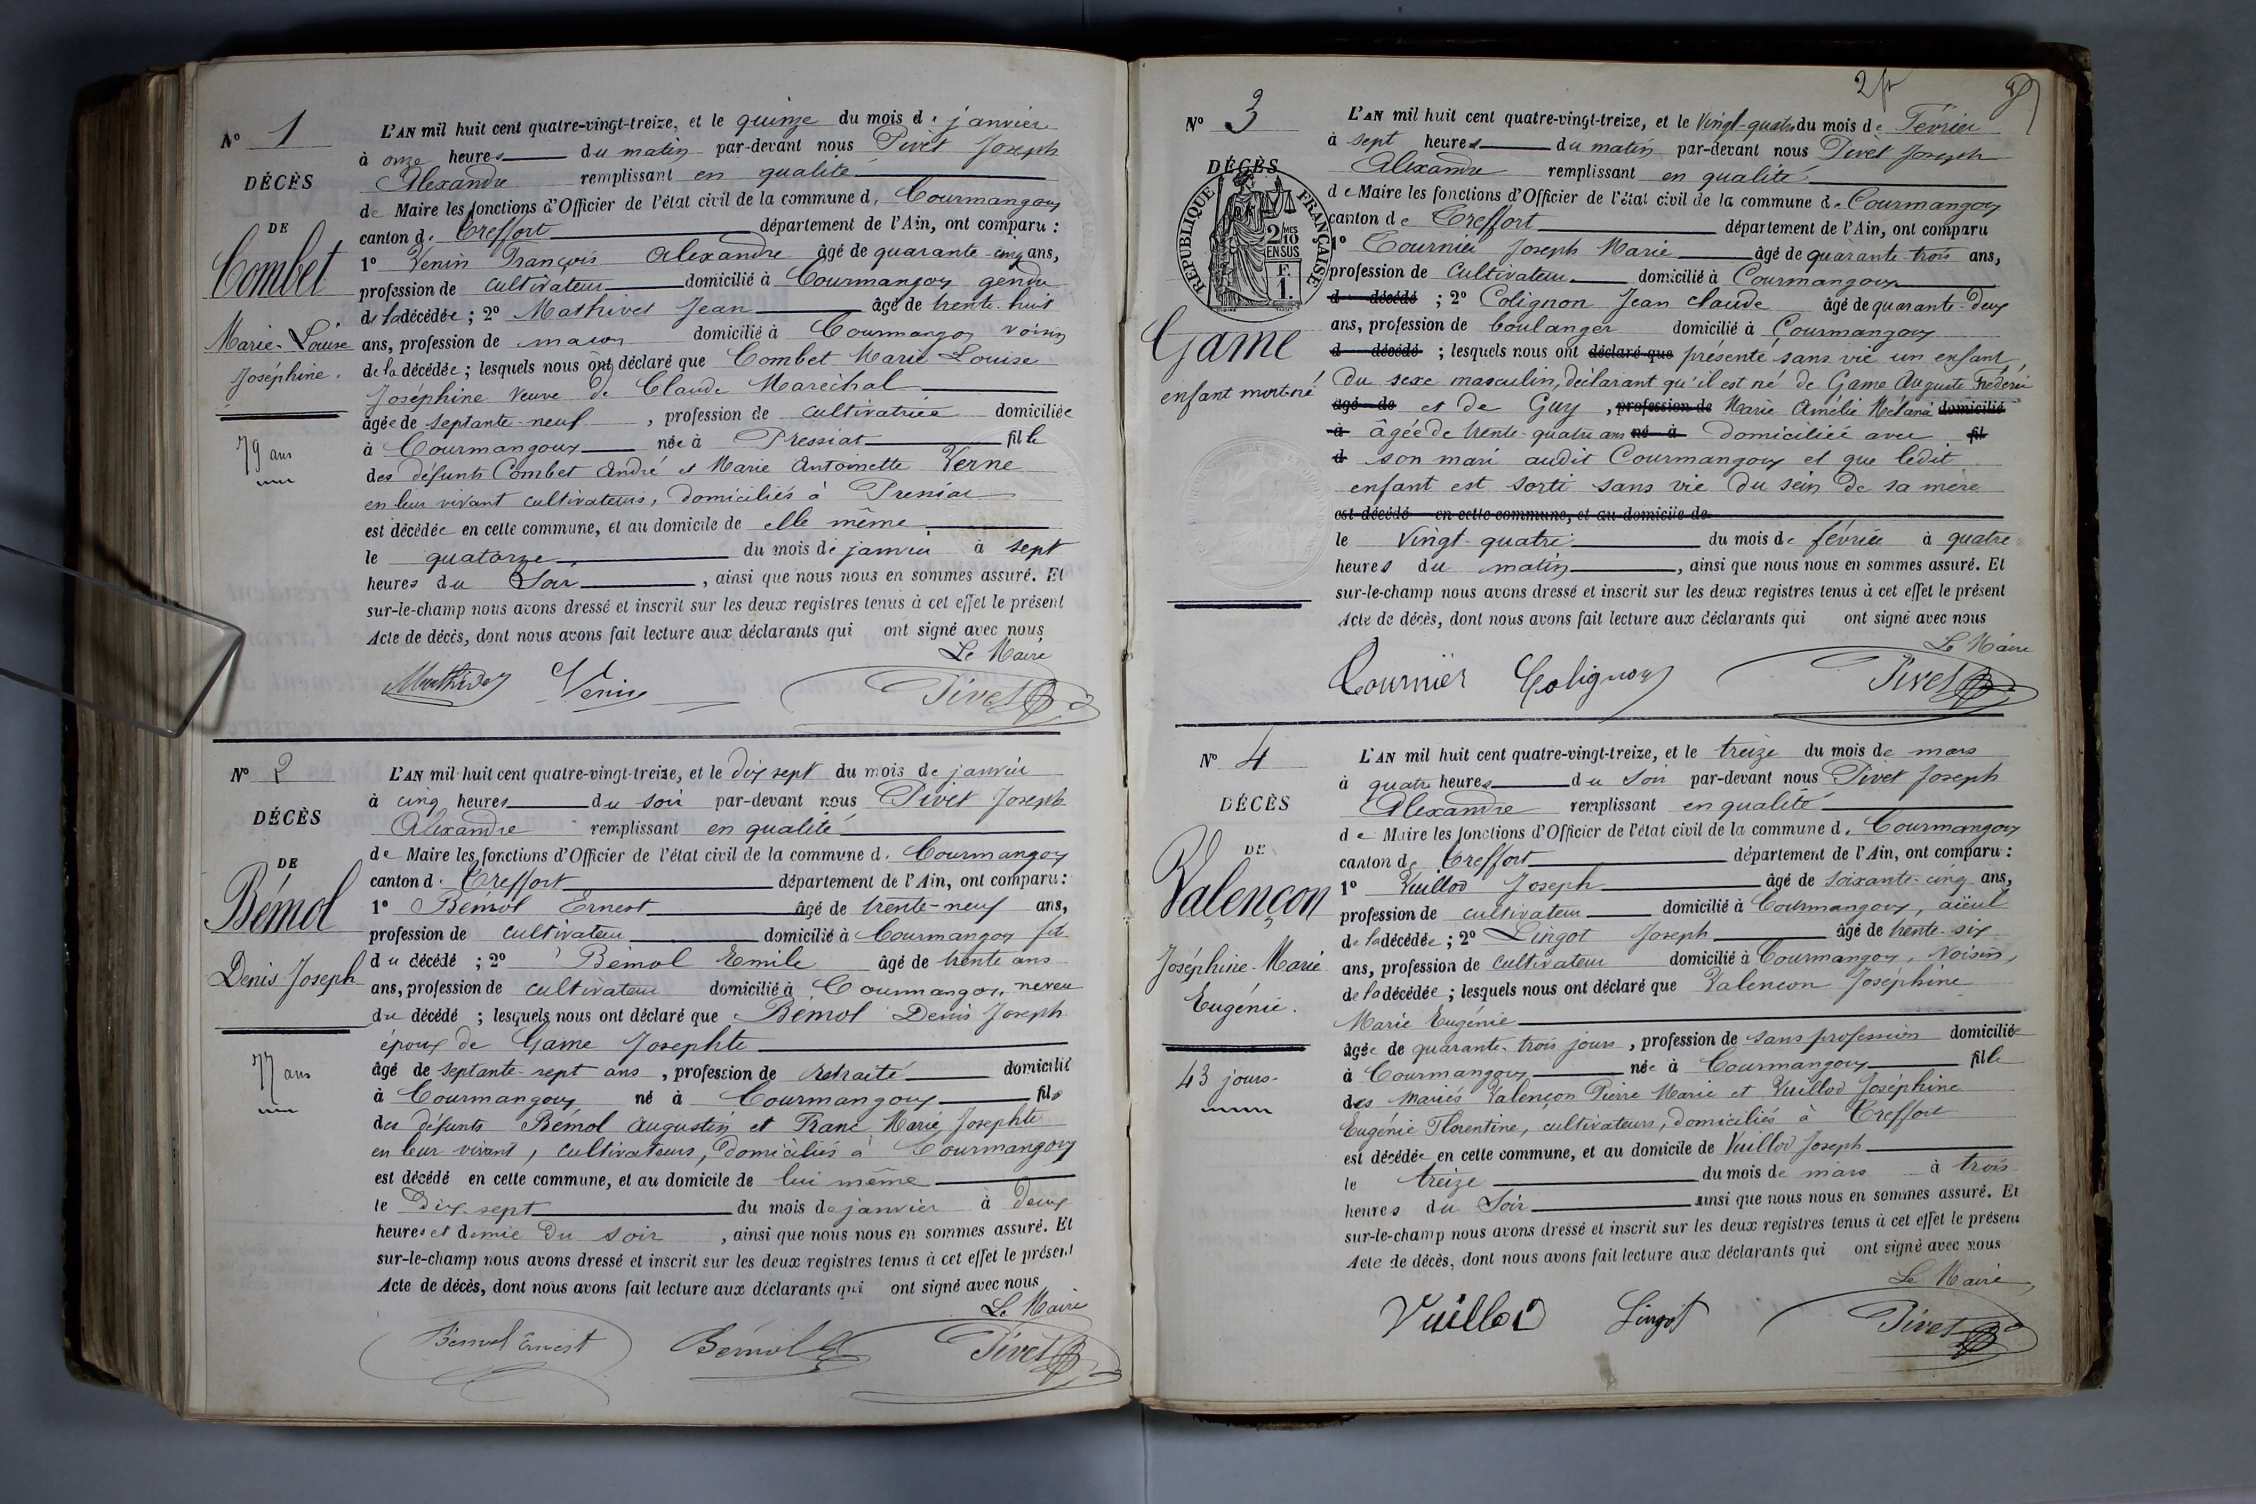 N° 1
DÉCÈS
DE
Combet
Marie-Louise
Joséphine.
79 ans
L'AN mil huit cent quatre-vingt-treize, et le quinze du mois de janvier
à onze heures du matin par-devant nous Pivet Joseph
Alexandre remplissant en qualité
de Maire les fonctions d'Officier de l'état civil de la commune d. Courmangoux
canton d. Treffort département de l'Ain, ont comparu :
1° Venin François Alexandre âgé de quarante-cinq ans,
profession de cultivateur domicilié à Courmangoux gendre
de la décédée ; 2° Mathivet Jean âgé de trente-huit
ans, profession de maçon domicilié à Courmangoux voisin
de la décédée ; lesquels nous ont déclaré que Combet Marie Louise
Joséphine veuve de Claude Maréchal
âgée de septante-neuf , profession de cultivatrice domiciliée
à Courmangoux née à Pressiat fille
des défunts Combet André et Marie Antoinette Verne
en leur vivant cultivateurs, domiciliés à Pressiat
est décédée en cette commune, et au domicile de elle même
le quatorze du mois de janvier à sept
heures du Soir , ainsi que nous nous en sommes assuré. Et
sur-le-champ nous avons dressé et inscrit sur les deux registres tenus à cet effet le présent
Acte de décès, dont nous avons fait lecture aux déclarants qui ont signé avec nous
Le Maire
Mathivet Venin Pivet
N° 2
DÉCÈS
DE
Bémol
Denis Joseph
77 ans
L'AN mil huit cent quatre-vingt-treize, et le dix sept du mois de janvier
à cinq heures du soir par-devant nous Pivet Joseph
Alexandre remplissant en qualité
de Maire les fonctions d'Officier de l'état civil de la commune d. Courmangoux
canton d. Treffort département de l'Ain, ont comparu :
1° Bémol Ernest âgé de trente-neuf ans,
profession de cultivateur domicilié à Courmangoux fils
du décédé ; 2° Bémol Emile âgé de trente ans
ans, profession de cultivateur domicilié à Courmangoux, neveu
du décédé ; lesquels nous ont déclaré que Bémol Denis Joseph
époux de Game Josephte
âgé de septante-sept ans , profession de retraité domicilié
à Courmangoux né à Courmangoux fils
des défunts Bémol Augustin et Franc Marie Josephte
en leur vivant, cultivateurs, domiciliés à Courmangoux
est décédé en cette commune, et au domicile de lui même
le Dix-sept du mois de janvier à deux
heures et demie du soir , ainsi que nous nous en sommes assuré. Et
sur-le-champ nous avons dressé et inscrit sur les deux registres tenus à cet effet le présent
Acte de décès, dont nous avons fait lecture aux déclarants qui ont signé avec nous
Le Maire
Bémol Ernest Bémol E Pivet
N° 3
DÉCÈS
RÉPUBLIQUE FRANÇAISE
2/10 MES
EN SUS
F.
1.
Game
enfant mort-né
L'AN mil huit cent quatre-vingt-treize, et le Vingt-quatre du mois de Février
à sept heures du matin par-devant nous Pivet Joseph
Alexandre remplissant en qualité
de Maire les fonctions d'Officier de l'état civil de la commune de Courmangoux
canton de Treffort département de l'Ain, ont comparu
1° Tournier Joseph Marie âgé de quarante-trois ans,
profession de cultivateur domicilié à Courmangoux
d décédé ; 2° Colignon Jean Claude âgé de quarante-deux
ans, profession de boulanger domicilié à Courmangoux
d décédé ; lesquels nous ont déclaré que présenté sans vie un enfant,
du sexe masculin, déclarant qu'il est né de Game Auguste Frédéric
âgé de et de Guy , profession de Marie Amélie Mélanie domicilié
à âgée de trente-quatre ans né à domiciliée avec fil
d son mari audit Courmangoux et que ledit
enfant est sorti sans vie du sein de sa mère
est décédé en cette commune, et au domicile de
le Vingt-quatre du mois de février à quatre
heures du matin , ainsi que nous nous en sommes assuré. Et
sur-le-champ nous avons dressé et inscrit sur les deux registres tenus à cet effet le présent
Acte de décès, dont nous avons fait lecture aux déclarants qui ont signé avec nous
Le Maire
Tournier Colignon Pivet
N° 4
DÉCÈS
DE
Valençon
Joséphine-Marie
Eugénie.
43 jours.
L'AN mil huit cent quatre-vingt-treize, et le treize du mois de mars
à quatre heures du Soir par-devant nous Pivet Joseph
Alexandre remplissant en qualité
de Maire les fonctions d'Officier de l'état civil de la commune d. Courmangoux
canton de Treffort département de l'Ain, ont comparu :
1° Vuillod Joseph âgé de soixante-cinq ans,
profession de cultivateur domicilié à Courmangoux, aïeul
de la décédée ; 2° Lingot Joseph âgé de trente-six
ans, profession de cultivateur domicilié à Courmangoux, voisin,
de la décédée ; lesquels nous ont déclaré que Valençon Joséphine
Marie Eugénie
âgée de quarante-trois jours , profession de sans profession domiciliée
à Courmangoux née à Courmangoux fille
des mariés Valençon Pierre Marie et Vuillod Joséphine
Eugénie Florentine, cultivateurs, domiciliés à Treffort
est décédée en cette commune, et au domicile de Vuillod Joseph
le treize du mois de mars à trois
heures du Soir ainsi que nous nous en sommes assuré. Et
sur-le-champ nous avons dressé et inscrit sur les deux registres tenus à cet effet le présent
Acte de décès, dont nous avons fait lecture aux déclarants qui ont signé avec nous
Le Maire
Vuillod Lingot Pivet